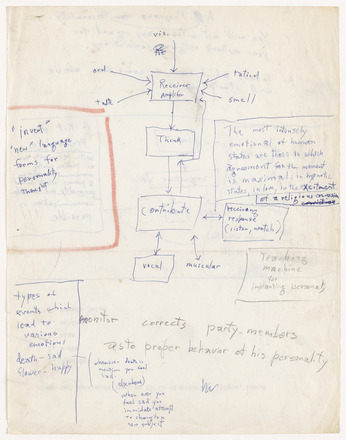 vis.
oral
tactical
Receiver
Amplifier
taste
smell
Think
"Invent"
"new" language
forms for
personality
thought
The most intensely
emotional of human
states are those to which
arousement for the moment
is maximal: in hypnotic
states, in love, in the excitment
of a religious
Contribute
receiving
response
(listen, watch)
vocal
muscular
Teaching
machine
for
implanting personality
types of
events which
lead to
various
emotions
death - sad
flower - happy
Monitor corrects party-members
as to proper behavior of his personality
whenever death is
mention you feel
sad.
(elsewhere)
when ever you
feel sad you
immediate attempt
to change to
new subject